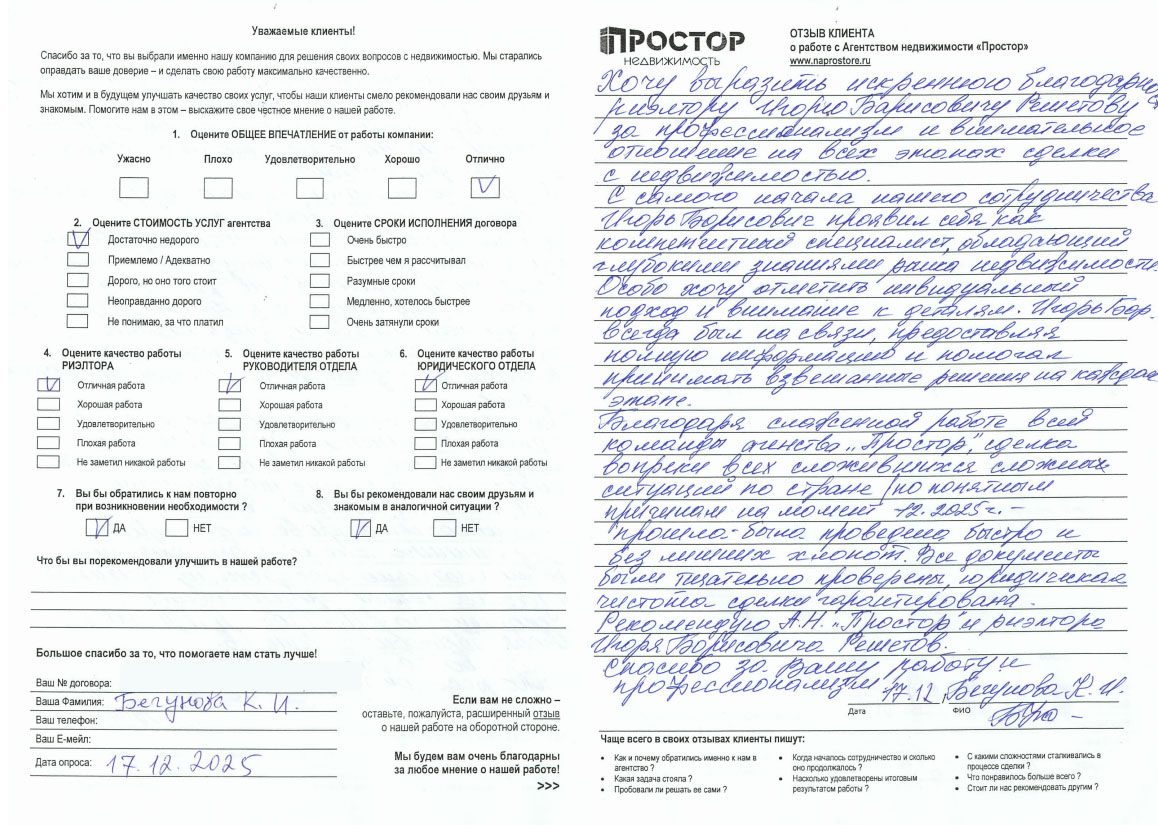 Уважаемые клиенты!
Спасибо за то, что вы выбрали именно нашу компанию для решения своих вопросов с недвижимостью. Мы старались
оправдать ваше доверие – и сделать свою работу максимально качественно.
Мы хотим и в будущем улучшать качество своих услуг, чтобы наши клиенты смело рекомендовали нас своим друзьям и
знакомым. Помогите нам в этом – выскажите свое честное мнение о нашей работе.
1. Оцените ОБЩЕЕ ВПЕЧАТЛЕНИЕ от работы компании:
Ужасно Плохо Удовлетворительно Хорошо Отлично
2. Оцените СТОИМОСТЬ УСЛУГ агентства
Достаточно недорого
Приемлемо / Адекватно
Дорого, но оно того стоит
Неоправданно дорого
Не понимаю, за что платил
3. Оцените СРОКИ ИСПОЛНЕНИЯ договора
Очень быстро
Быстрее чем я рассчитывал
Разумные сроки
Медленно, хотелось быстрее
Очень затянули сроки
4. Оцените качество работы
РИЭЛТОРА
Отличная работа
Хорошая работа
Удовлетворительно
Плохая работа
Не заметил никакой работы
5. Оцените качество работы
РУКОВОДИТЕЛЯ ОТДЕЛА
Отличная работа
Хорошая работа
Удовлетворительно
Плохая работа
Не заметил никакой работы
6. Оцените качество работы
ЮРИДИЧЕСКОГО ОТДЕЛА
Отличная работа
Хорошая работа
Удовлетворительно
Плохая работа
Не заметил никакой работы
7. Вы бы обратились к нам повторно
при возникновении необходимости ?
ДА НЕТ
8. Вы бы рекомендовали нас своим друзьям и
знакомым в аналогичной ситуации ?
ДА НЕТ
Что бы вы порекомендовали улучшить в нашей работе?
Большое спасибо за то, что помогаете нам стать лучше!
Ваш № договора:
Ваша Фамилия: Бегунова К. И.
Ваш телефон:
Ваш Е-мейл:
Дата опроса: 17.12.2025
Если вам не сложно –
оставьте, пожалуйста, расширенный отзыв
о нашей работе на оборотной стороне.
Мы будем вам очень благодарны
за любое мнение о нашей работе!
>>>
ПРОСТОР
НЕДВИЖИМОСТЬ
ОТЗЫВ КЛИЕНТА
о работе с Агентством недвижимости «Простор»
www.naprostore.ru
Хочу выразить искреннюю благодарность
риэлтору Игорю Борисовичу Решетову
за профессионализм и внимательное
отношение на всех этапах сделки
с недвижимостью.
С самого начала нашего сотрудничества
Игорь Борисович проявил себя как
компетентный специалист, обладающий
глубокими знаниями рынка недвижимости.
Особо хочу отметить инвидуальный
подход и внимание к деталям. Игорь Бор.
всегда был на связи, предоставляя
полную информацию и помогал
принимать взвешанные решения на каждом
этапе.
Благодаря слаженной работе всей
команды агенства „Простор", сделка
вопреки всех сложившихся сложных
ситуаций по стране /по понятным
причинам на момент 12.2025г. –
прошла - была проведена быстро и
без лишних хлопот. Все документы
были тщательно проверены, юридическая
чистота сделки гарантирована.
Рекомендую А.Н. „Простор" и риэлтора
Игоря Борисовича Решетов.
Спасибо за Вашу работу и
профессионализм
17.12 Бегунова К. И.
Дата ФИО
Чаще всего в своих отзывах клиенты пишут:
Как и почему обратились именно к нам в
агентство ?
Какая задача стояла ?
Пробовали ли решать ее сами ?
Когда началось сотрудничество и сколько
оно продолжалось ?
Насколько удовлетворены итоговым
результатом работы ?
С какими сложностями сталкивались в
процессе сделки ?
Что понравилось больше всего ?
Стоит ли нас рекомендовать другим ?